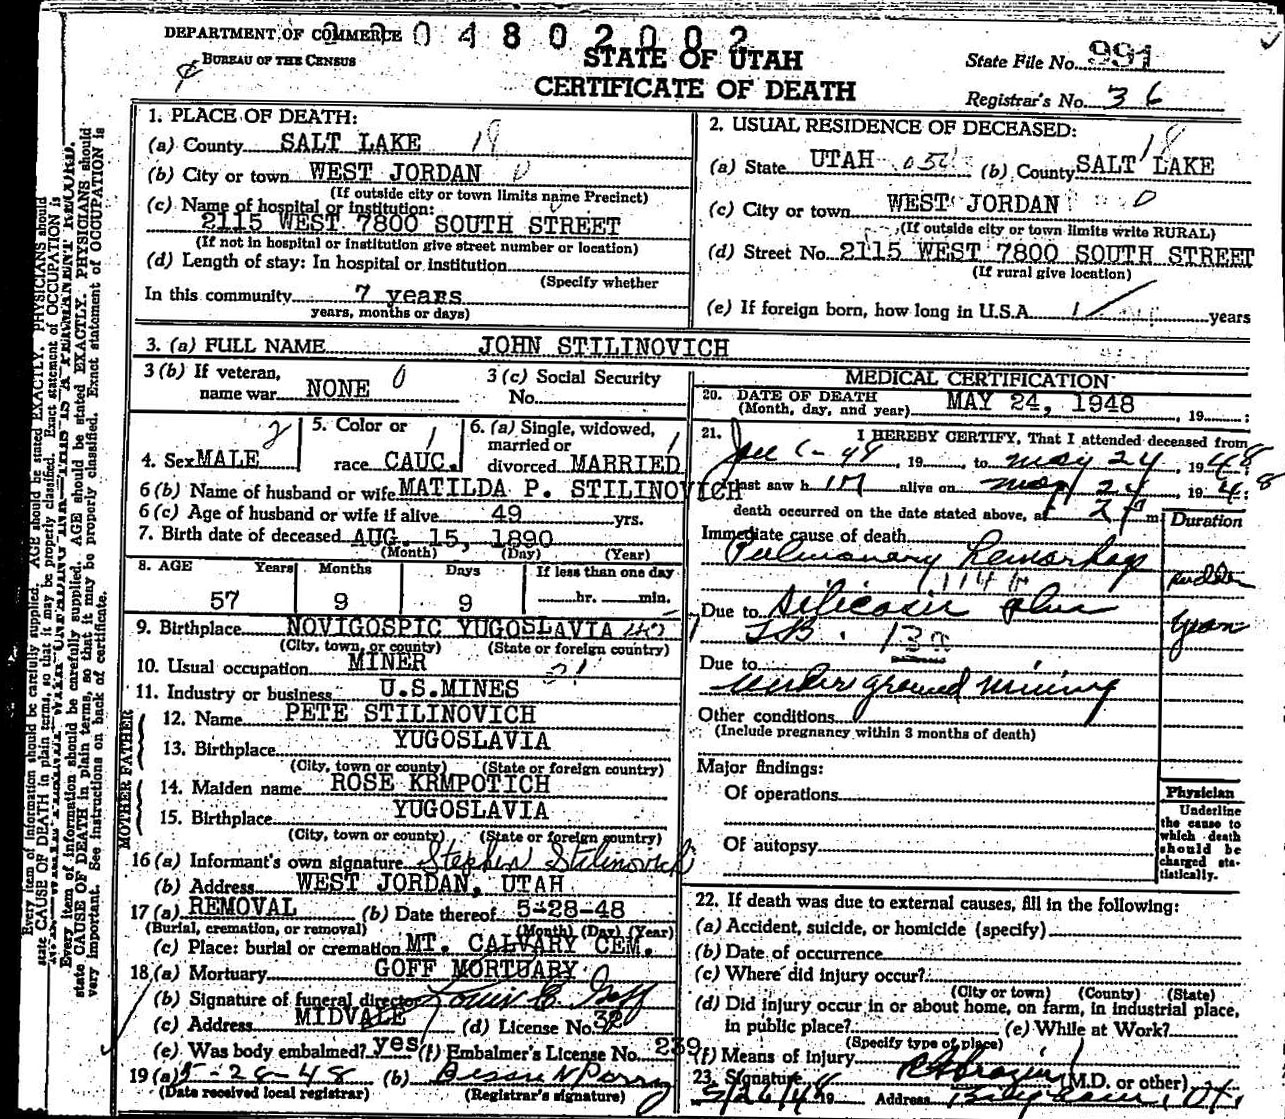 DEPARTMENT OF COMMERCE
BUREAU OF THE CENSUS
04802002
STATE OF UTAH
CERTIFICATE OF DEATH
State File No. 991
Registrar's No. 36
1. PLACE OF DEATH:
(a) County SALT LAKE 19
(b) City or town WEST JORDAN 0
(If outside city or town limits name Precinct)
(c) Name of hospital or institution:
2115 WEST 7800 SOUTH STREET
(If not in hospital or institution give street number or location)
(d) Length of stay: In hospital or institution
(Specify whether
In this community 7 years
years, months or days)
2. USUAL RESIDENCE OF DECEASED:
18
(a) State UTAH (b) County SALT LAKE
(c) City or town WEST JORDAN 0
(If outside city or town limits write RURAL)
(d) Street No. 2115 WEST 7800 SOUTH STREET
(If rural give location)
(e) If foreign born, how long in U.S.A. years
3. (a) FULL NAME JOHN STILINOVICH
3 (b) If veteran, name war NONE 0
3 (c) Social Security No.
4. Sex MALE 2
5. Color or race CAUC. 1
6. (a) Single, widowed, married or divorced MARRIED 1
6 (b) Name of husband or wife MATILDA P. STILINOVICH
6 (c) Age of husband or wife if alive 49 yrs.
7. Birth date of deceased AUG. 15, 1890
(Month) (Day) (Year)
8. AGE Years Months Days If less than one day
57 9 9 hr. min.
9. Birthplace NOVIGOSPIC YUGOSLAVIA
(City, town, or county) (State or foreign country)
10. Usual occupation MINER
11. Industry or business U.S.MINES
FATHER
12. Name PETE STILINOVICH
13. Birthplace YUGOSLAVIA
(City, town or county) (State or foreign country)
MOTHER
14. Maiden name ROSE KRMPOTICH
15. Birthplace YUGOSLAVIA
(City, town or county) (State or foreign country)
16 (a) Informant's own signature Stephen Stilinovich
(b) Address WEST JORDAN, UTAH
17 (a) REMOVAL (b) Date thereof 5-28-48
(Burial, cremation, or removal) (Month) (Day) (Year)
(c) Place: burial or cremation MT. CALVARY CEM.
18 (a) Mortuary GOFF MORTUARY
(b) Signature of funeral director Louis E. Goff
(c) Address MIDVALE (d) License No. 32
(e) Was body embalmed? yes (f) Embalmer's License No. 239
19 (a) 5-28-48 (b) Bessie N Parry
(Date received local registrar) (Registrar's signature)
MEDICAL CERTIFICATION
20. DATE OF DEATH
(Month, day, and year) MAY 24, 1948, 19 :
21. I HEREBY CERTIFY, That I attended deceased from
, 19 , to May 24, 1948
last saw him alive on May 24 1948
death occurred on the date stated above, at 2 m
Duration
Immediate cause of death
Pulmonary Hemorhage
sudden
114
Due to silicosis plus
years
T.B. 13a
Due to
Under ground mining
Other conditions
(Include pregnancy within 3 months of death)
Major findings:
Of operations
Of autopsy
Physician
Underline the cause to which death should be charged statistically.
22. If death was due to external causes, fill in the following:
(a) Accident, suicide, or homicide (specify)
(b) Date of occurrence
(c) Where did injury occur?
(City or town) (County) (State)
(d) Did injury occur in or about home, on farm, in industrial place,
in public place? (e) While at Work?
(Specify type of place)
(f) Means of injury
23. Signature (M.D. or other)
5/26/48 19 Address
Every item of information should be carefully supplied. AGE should be stated EXACTLY. PHYSICIANS should
state CAUSE OF DEATH in plain terms, so that it may be properly classified. Exact statement of OCCUPATION is
very important. See instructions on back of certificate.